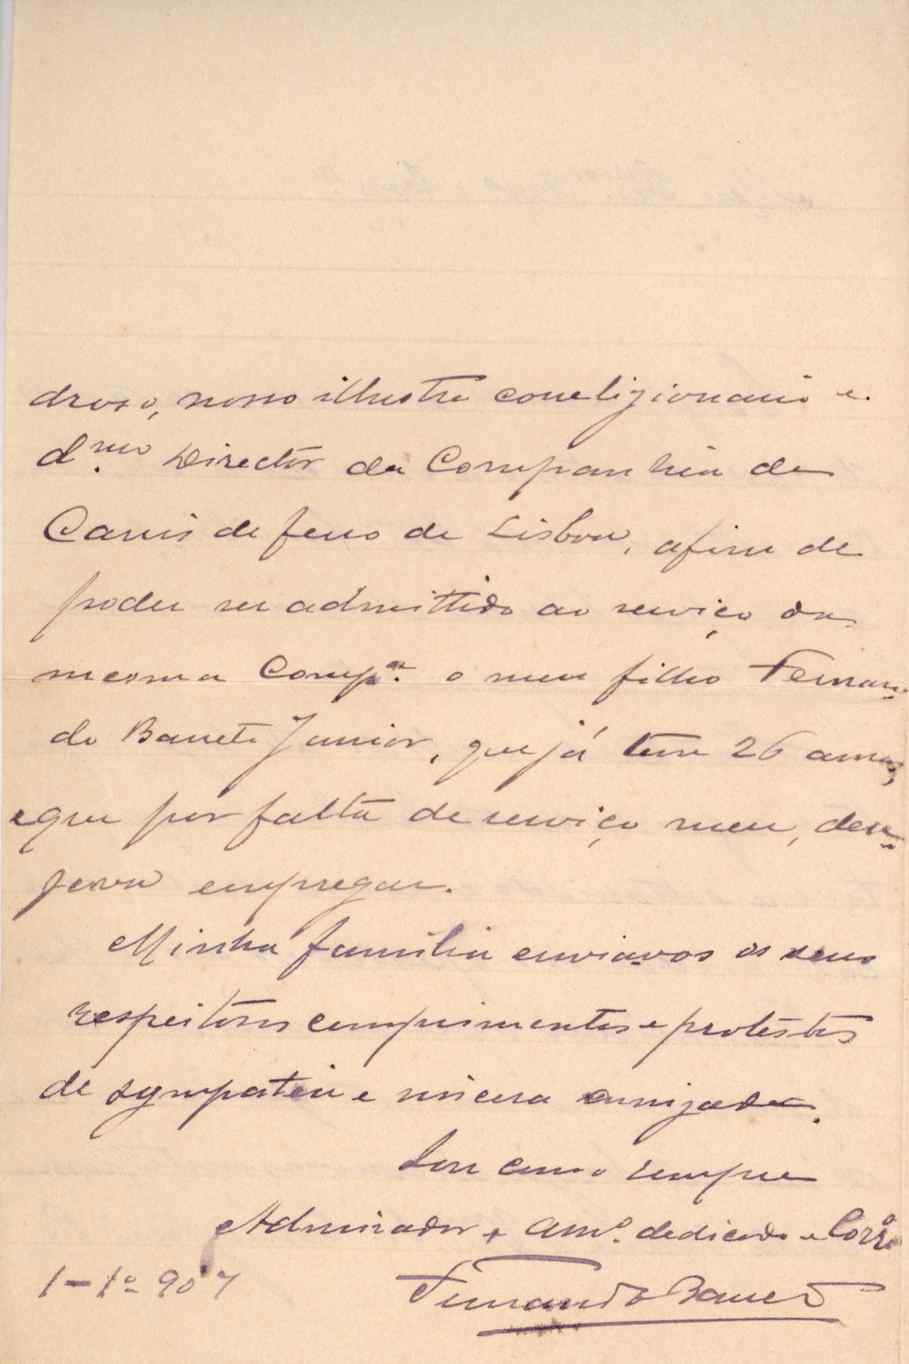 droso, nosso illustre correligionario e
d.mo Director da Companhia de
Carris de ferro de Lisboa, afim de
poder ser admittido ao serviço da
mesma Comp.a o meu filho Fernan-
do Baneto Junior, que já tem 26 annos,
e que por falta de serviço meu, dese-
java empregar.
Minha familia enviavos os seus
respeitosos cumprimentos e protestos
de sympatia e sincera amizade.
Sou como sempre
Admirador e Am.o dedicado e Corr.o
1-1º-907
Fernando